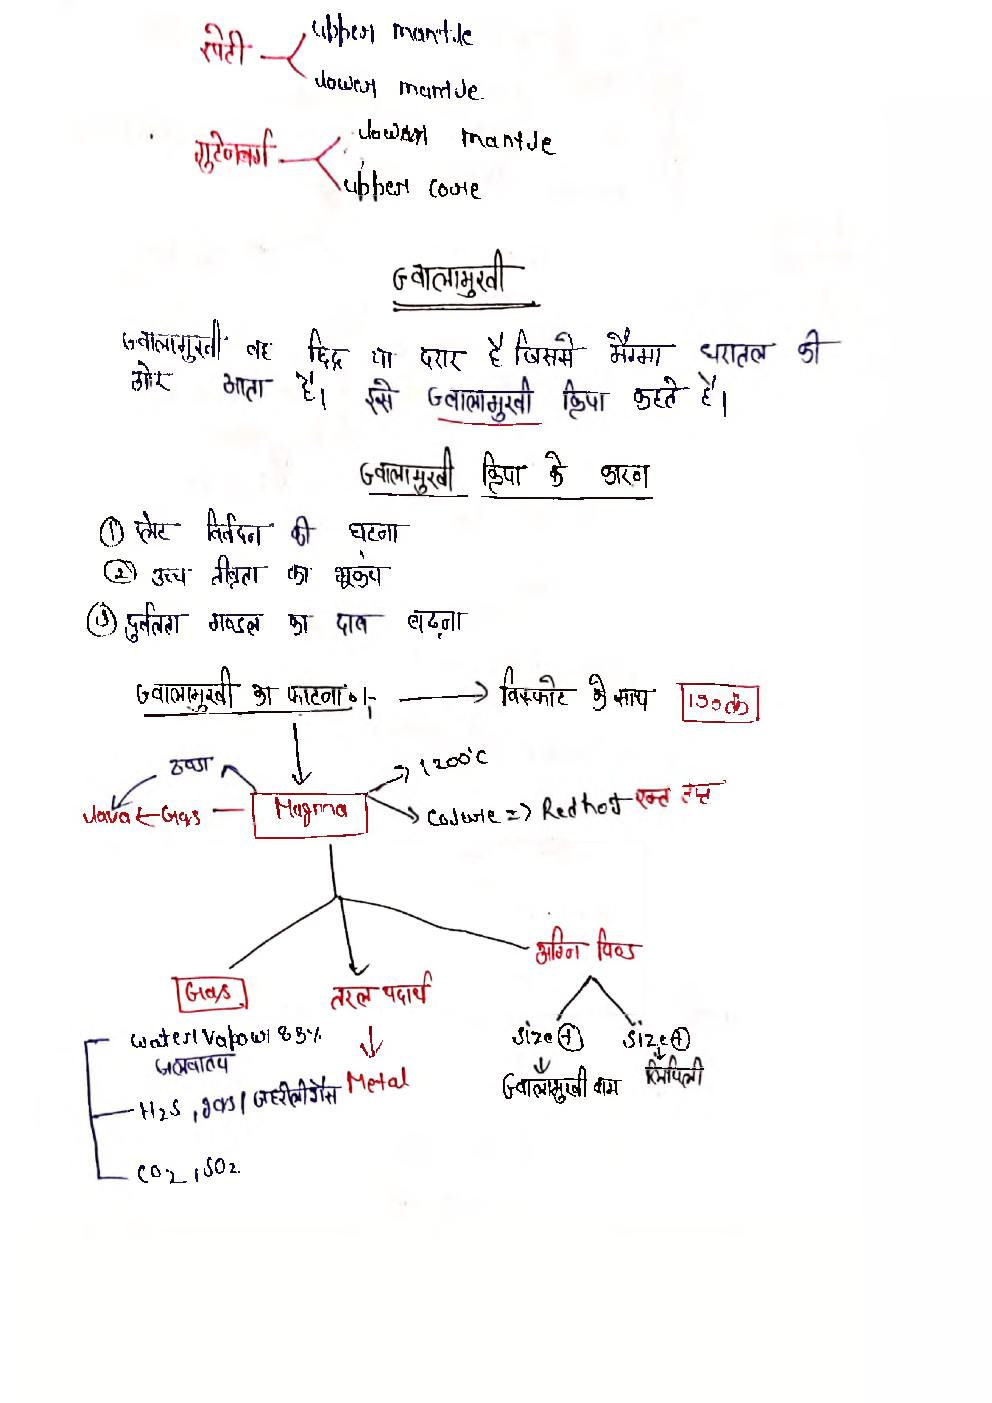 रेपेटी
upper mantle
lower mantle
गुटेनबर्ग
lower mantle
upper core
ज्वालामुखी
ज्वालामुखी वह छिद्र या दरार है जिससे मैग्मा धरातल की
ओर आता है। इसे ज्वालामुखी क्रिया कहते है।
ज्वालामुखी क्रिया के कारन
① प्लेट विर्वतन की घटना
② उच्च तीव्रता का भूकंप
③ दुर्बलता मण्डल का दाब बढ़ना
ज्वालामुखी का फाटना :- → विस्फोट के साथ
ठण्डा
1200°C
lava ← Gas
Magma
Colure => Red hot रक्त तप्त
अग्नि पिण्ड
Gas
तरल पदार्थ
Water/Vapour 85%
size +
size +
जलवाष्प
Metal
ज्वालामुखी बाम
लिपिली
H2S, gas/जहरीली गैस
CO2, SO2